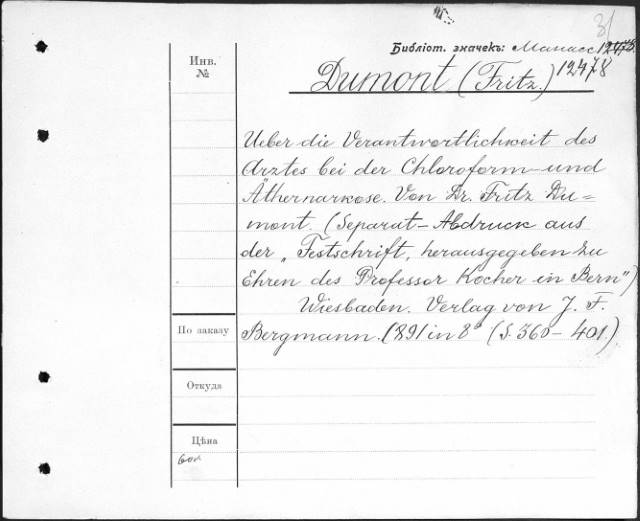 3/
Библіот. значекъ: Манасс
Инв.
№
Dumont (Fritz.) 12478
Ueber die Verantwortlichkeit des
Arztes bei der Chloroform- und
Äthernarkose. Von Dr. Fritz Du=
mont. (Separat-Abdruck aus
der „Festschrift, herausgegeben zu
Ehren des Professor Kocher in Bern")
Wiesbaden. Verlag von J. F.
По заказу
Bergmann. 1891 in 8° (S. 360-401.)
Откуда
Цѣна